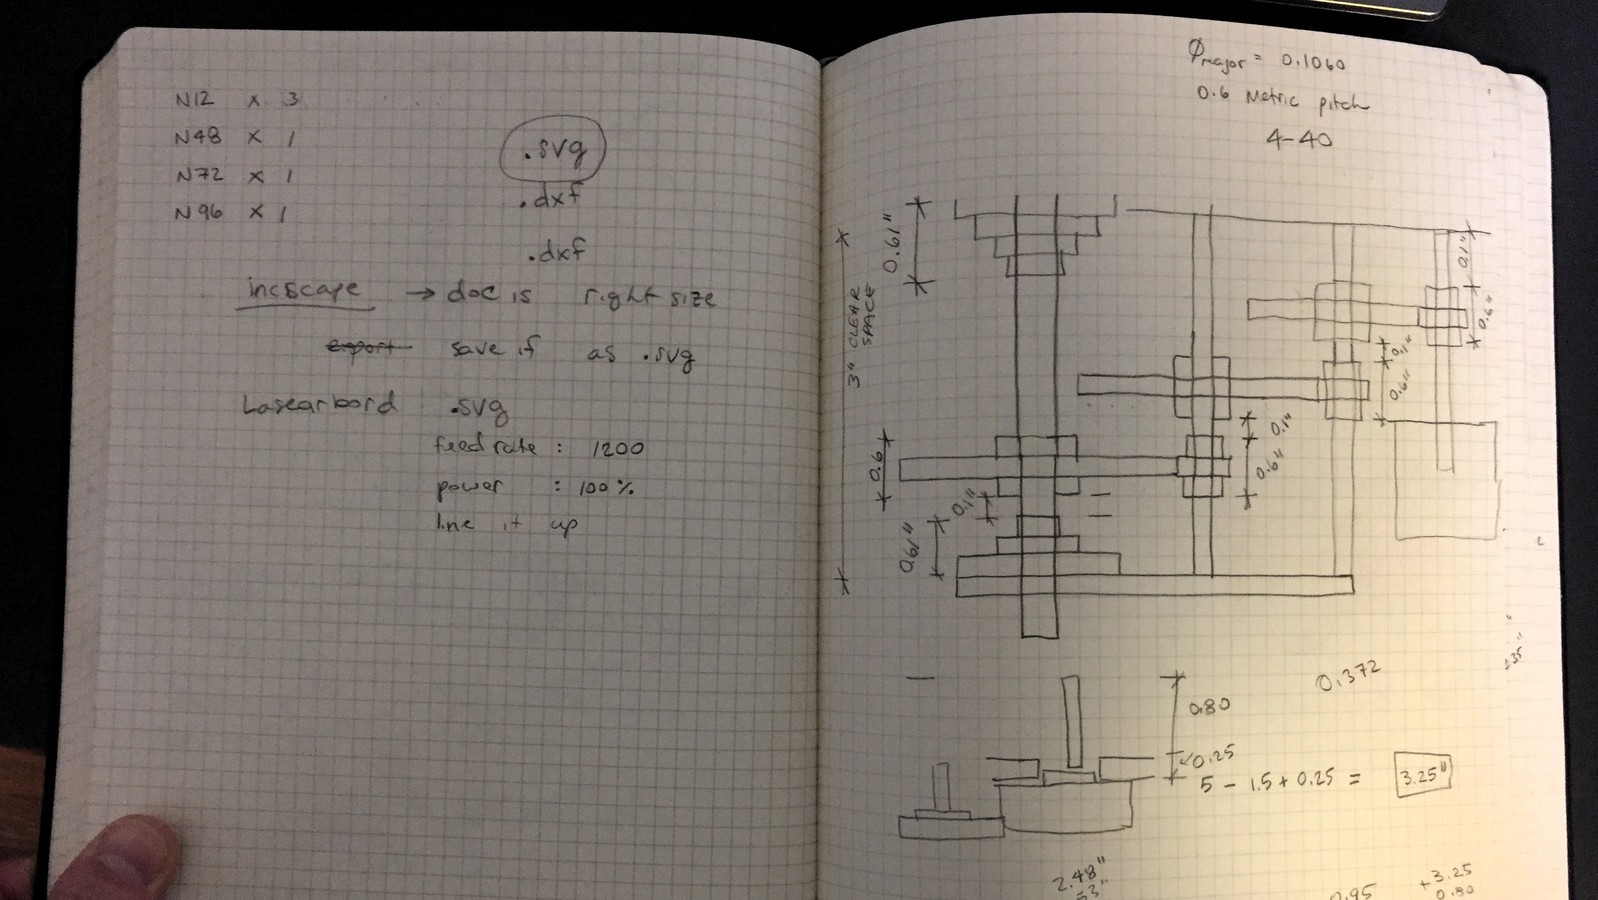 N12 x 3
N48 x 1
N72 x 1
N96 x 1
.svg
.dxf
.dxf
incscape → doc is right size
export save if as .svg
Lasearbord .svg
feed rate : 1200
power : 100%
line it up
Ømajor = 0.1060
0.6 Metric pitch
4-40
0.61"
3" CLEAR SPACE
0.1"
0.6"
0.1"
0.6"
0.1"
0.6"
0.6
0.1"
0.61"
0.372
0.80
0.25
5 - 1.5 + 0.25 = 3.25"
2.48"
0.95
+3.25
0.80